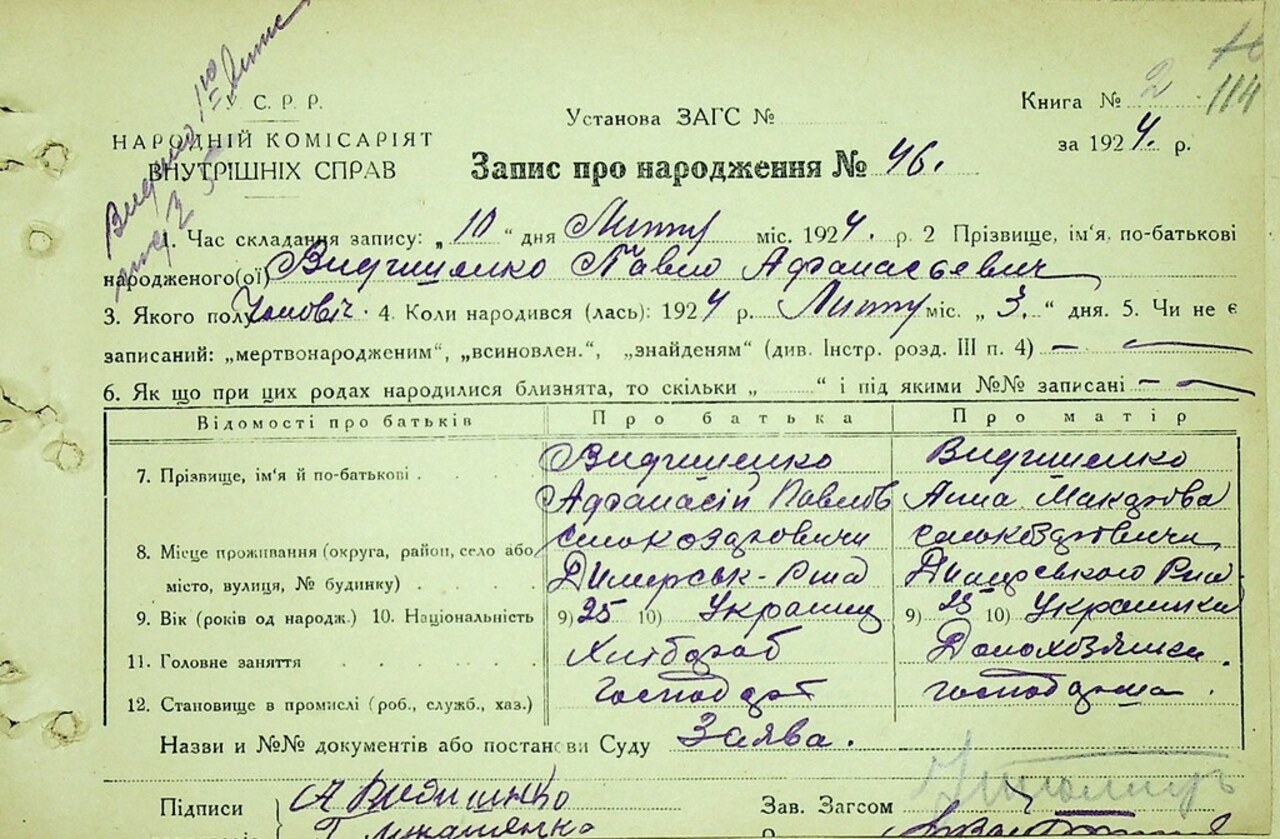 114
У. С. Р. Р.
НАРОДНІЙ КОМІСАРІЯТ
ВНУТРІШНІХ СПРАВ
Установа ЗАГС №
Книга № 2
за 1924. р.
Запис про народження № 46.
1. Час складання запису: „ 10 “ дня Люту міс. 1924. р. 2 Прізвище, ім'я, по-батькові
народженого(ої) Видишенко Павло Афанасьевич
3. Якого полу Чоловіч. 4. Коли народився (лась): 1924 р. Люту міс. „ 3. “ дня. 5. Чи не є
записаний: „мертвонародженим“, „всиновлен.“, „знайденям“ (див. Інстр. розд. III п. 4) — —
6. Як що при цих родах народилися близнята, то скільки „ “ і під якими №№ записані — —
Відомості про батьків Про батька Про матір
7. Прізвище, ім'я й по-батькові Видишенко Видишенко
Афанасій Павлов Анна Макарова
8. Місце проживання (округа, район, село або
місто, вулиця, № будинку) Димерськ- Димерського
9. Вік (років од народж.) 10. Національність 9) 25 10) Украинец 9) 25 10) Украинка
11. Головне заняття Хлібороб Домохозяйка.
12. Становище в промислі (роб., служб., хаз.) господар господарка.
Назви и №№ документів або постанови Суду Заява.
Підписи А Видишенко
Зав. Загсом